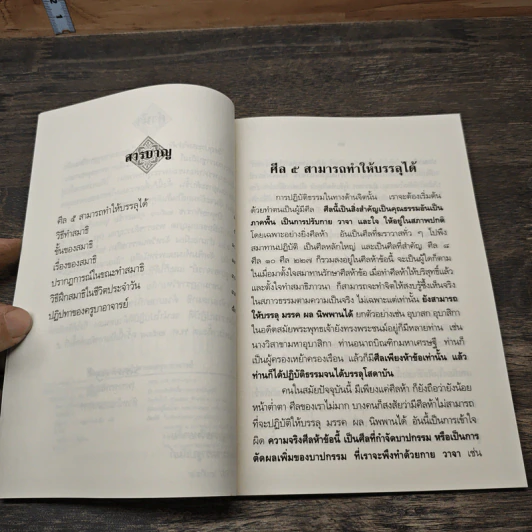 สารบาญ
ศีล ๕ สามารถทำให้บรรลุได้
วิธีทำสมาธิ
ขั้นของสมาธิ
เรื่องของสมาธิ
ปรากฏการณ์ในขณะทำสมาธิ
วิธีฝึกสมาธิในชีวิตประจำวัน
ปฏิปทาของครูบาอาจารย์
ศีล ๕ สามารถทำให้บรรลุได้
การปฏิบัติธรรมในทางด้านจิตนั้น เราจะต้องเริ่มต้น
ด้วยทำตนเป็นผู้มีศีล ศีลนี้เป็นสิ่งสำคัญเป็นคุณธรรมอันเป็น
ภาคพื้น เป็นการปรับกาย วาจา และใจ ให้อยู่ในสภาพปกติ
โดยเฉพาะอย่างยิ่งศีลห้า อันเป็นศีลที่ฆราวาสทั่ว ๆ ไปพึง
สมาทานปฏิบัติ เป็นศีลหลักใหญ่ และเป็นศีลที่สำคัญ ศีล ๘
ศีล ๑๐ ศีล ๒๒๗ ก็รวมลงอยู่ในศีลห้าข้อนี้ จะเป็นผู้ใดก็ตาม
ในเมื่อมาตั้งใจสมาทานรักษาศีลห้าข้อ เมื่อทำศีลห้าให้บริสุทธิ์แล้ว
และตั้งใจทำสมาธิภาวนา ก็สามารถจะทำจิตให้สงบรู้ซึ้งเห็นจริง
ในสภาวธรรมตามความเป็นจริง ไม่เฉพาะแต่เท่านั้น ยังสามารถ
ให้บรรลุ มรรค ผล นิพพานได้ ยกตัวอย่างเช่น อุบาสก อุบาสิกา
ในอดีตสมัยพระพุทธเจ้ายังทรงพระชนม์อยู่ก็มีหลายท่าน เช่น
นางวิสาขามหาอุบาสิกา ท่านอนาถบิณฑิกมหาเศรษฐี ท่านก็
เป็นผู้ครองเหย้าครองเรือน แล้วก็มีศีลเพียงห้าข้อเท่านั้น แล้ว
ท่านก็ได้ปฏิบัติธรรมจนได้บรรลุโสดาบัน
คนในสมัยปัจจุบันนี้ มีเพียงแค่ศีลห้า ก็ยังถือว่ายังน้อย
หน้าต่ำตา ศีลของเราไม่มาก บางคนก็สงสัยว่ามีศีลห้าไม่สามารถ
ที่จะปฏิบัติให้บรรลุ มรรค ผล นิพพานได้ อันนี้เป็นการเข้าใจ
ผิด ความจริงศีลห้าข้อนี้ เป็นศีลที่กำจัดบาปกรรม หรือเป็นการ
ตัดผลเพิ่มของบาปกรรม ที่เราจะพึงทำด้วยกาย วาจา เช่น